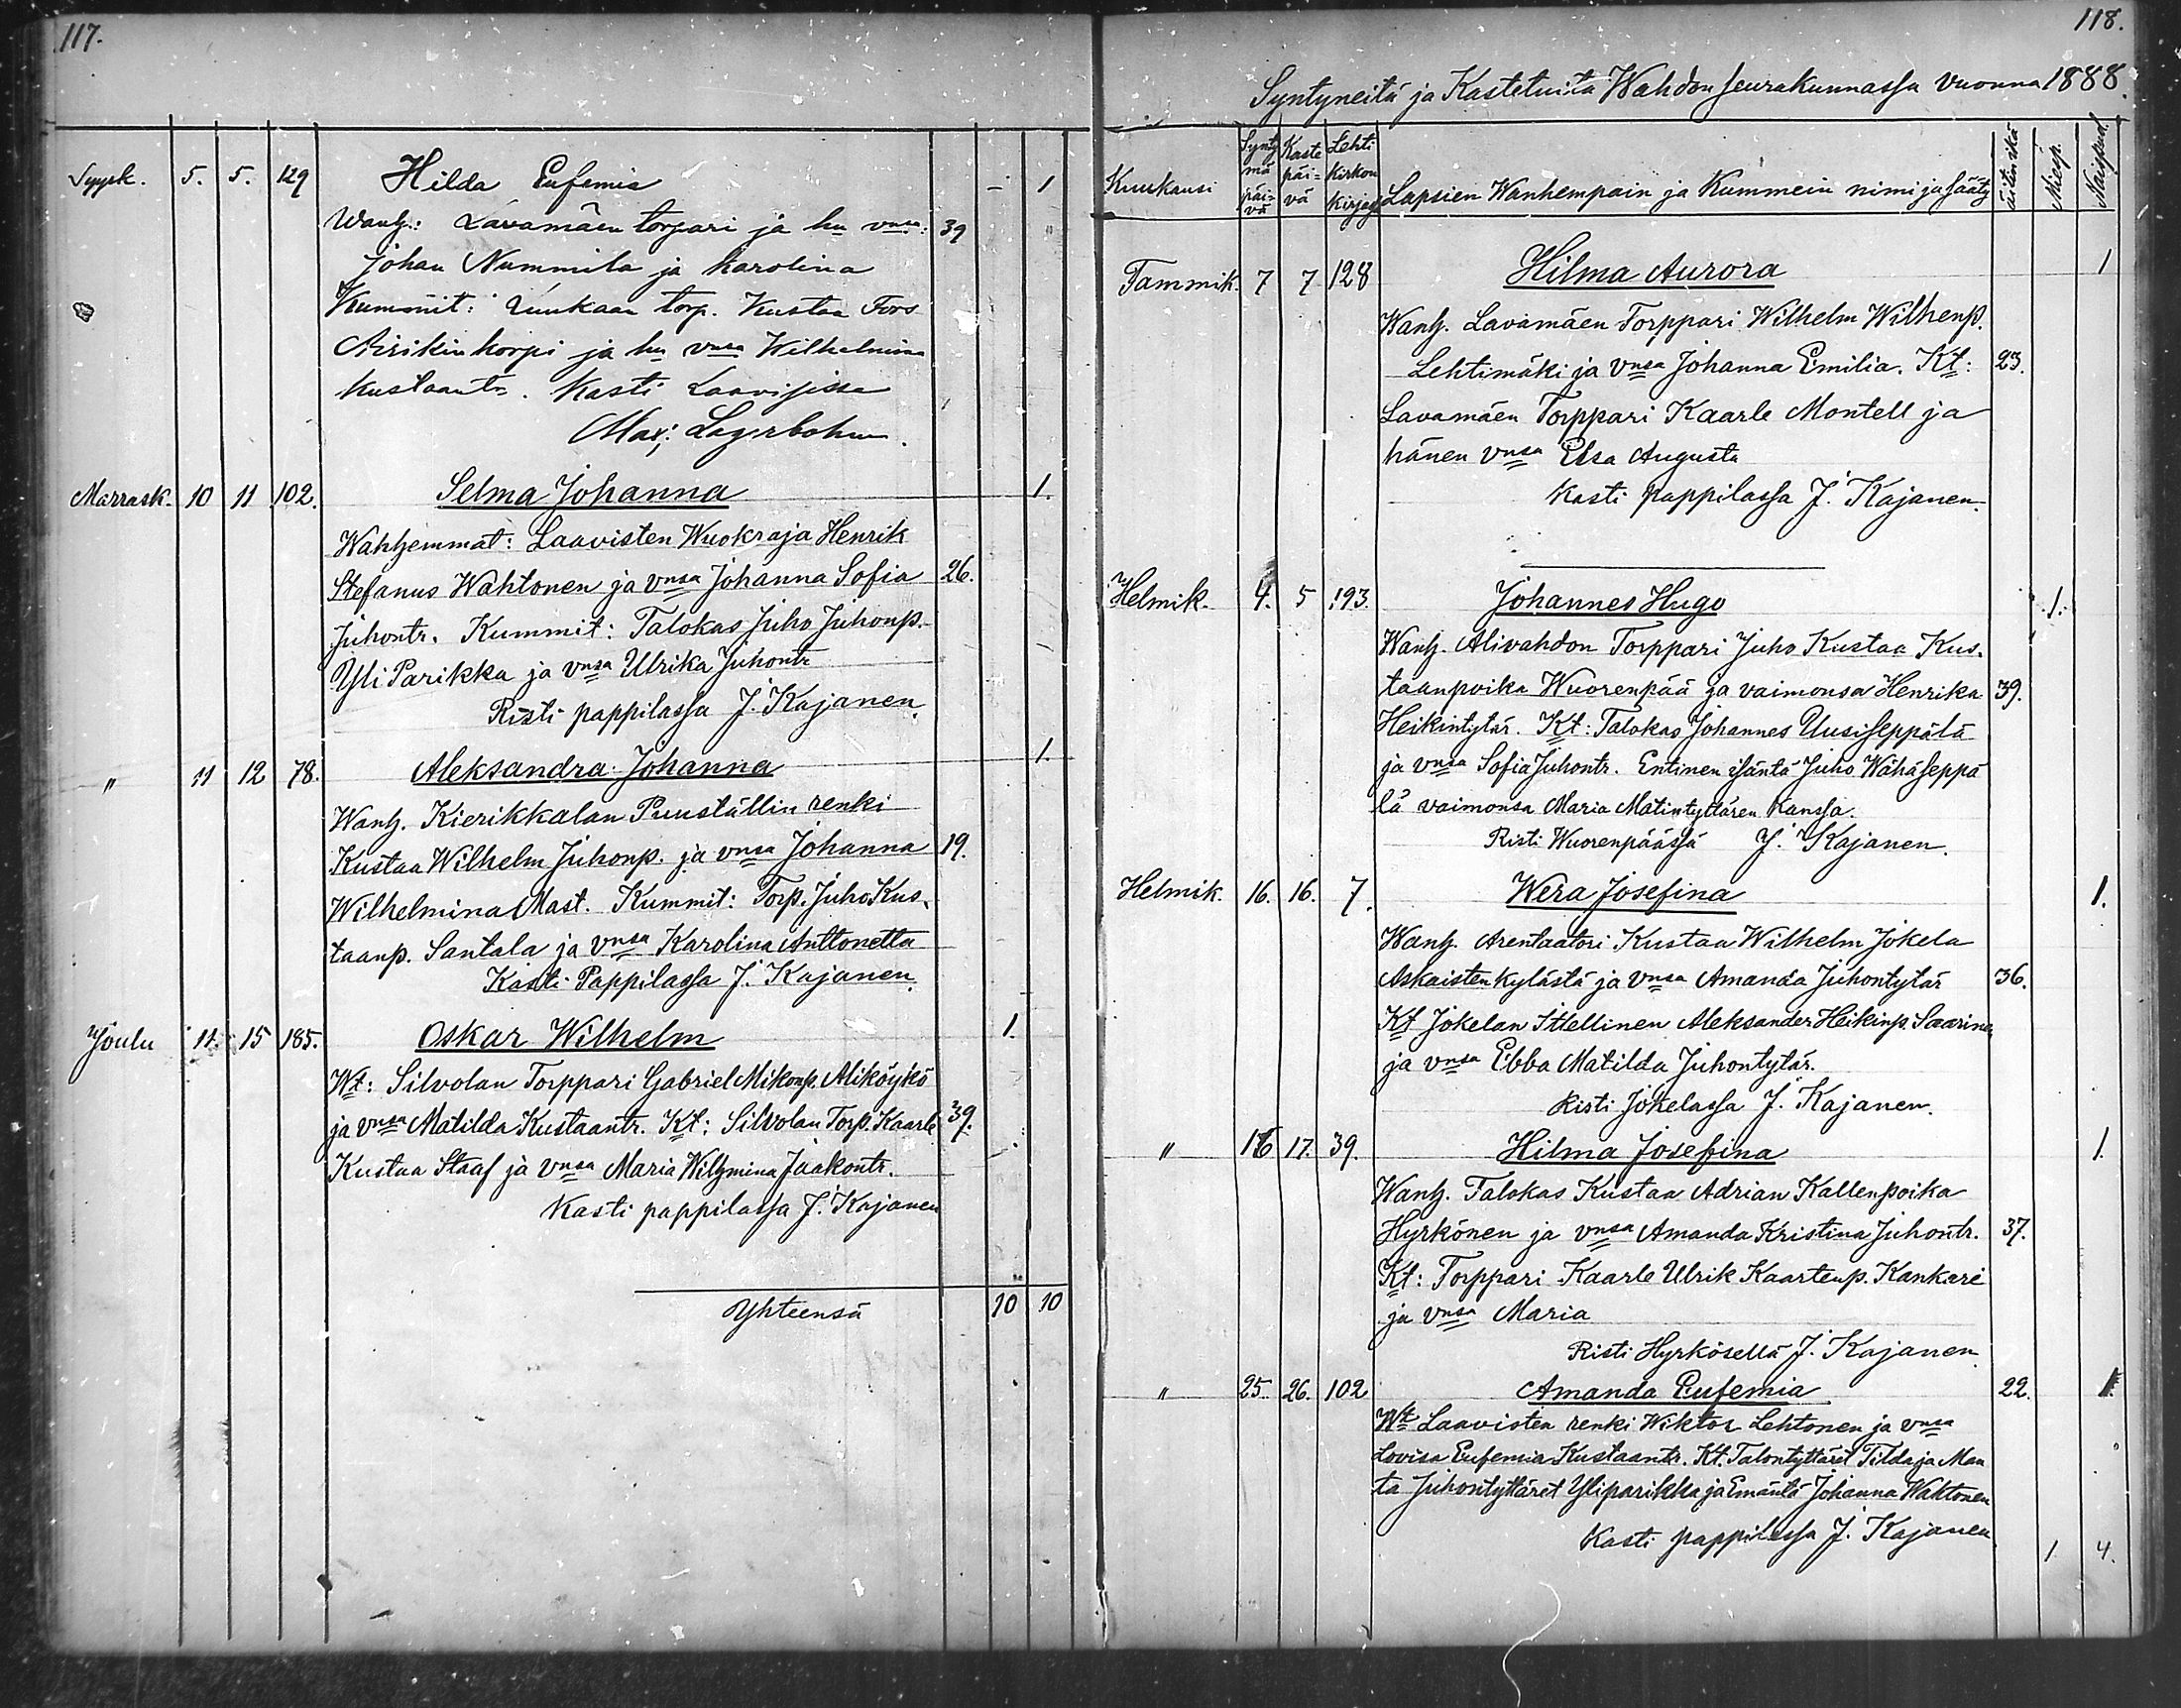 117.
Syysk. 5. 5. 129 Hilda Eufemia – 1
Wanh: Lavamäen torpari ja hn vnsa: 39
Johan Nummila ja Karolina
Kummit: torp. Kustaa Fors
ja hn vnsa Wilhelmina
Kustaantr. Kasti
Max; Lagerbohm.
Marrask. 10 11 102. Selma Johanna 1.
Wanhemmat: Laavisten Wuokraaja Henrik
Stefanus Wahtonen ja vnsa Johanna Sofia 26.
Juhontr. Kummit: Talokas Juho Juhonp.
Yli Parikka ja vnsa Ulrika Juhontr
Risti pappilassa J. Kajanen.
" 11 12 78. Aleksandra Johanna 1.
Wanh. Kierikkalan Puuställin renki
Kustaa Wilhelm Juhonp. ja vnsa Johanna 19.
Wilhelmina Mast. Kummit: Torp. Juho Kus-
taanp. Santala ja vnsa Karolina Anttonetta
Kasti Pappilassa J. Kajanen.
Joulu 11. 15 185. Oskar Wilhelm 1.
Wt: Silvolan Torppari Gabriel Mikonp. Aliköykö
ja vnsa Matilda Kustaantr. Kt: Silvolan Torp. Kaarle 39.
Kustaa Staaf ja vnsa Maria Wilhmina Jaakontr.
Kasti pappilassa J. Kajanen
Yhteensä 10 10
118.
Syntyneitä ja Kastetuita Wahdon seurakunnassa vuonna 1888.
Kuukausi Syntymä päivä Kaste päi=vä Lehti kirkon kirjassa Lapsien Wanhempain ja Kummein nimi ja sääty äitin ikä Miesp. Naispuol.
Tammik. 7 7 128 Hilma Aurora 1
Wanh. Lavamäen Torppari Wilhelm Wilhenp.
Lehtimäki ja vnsa Johanna Emilia. Kt: 23.
Lavamäen Torppari Kaarle Montell ja
hänen vnsa Elsa Augusta
Kasti pappilassa J. Kajanen.
Helmik. 4. 5 193. Johannes Hugo 1.
Wanh. Alivahdon Torppari Juho Kustaa Kus-
taanpoika Wuorenpää ja vaimonsa Henrika 39.
Heikintytär. Kt: Talokas Johannes Uusiseppälä
ja vnsa Sofia Juhontr. Entinen isäntä Juho Wähäseppä
lä vaimonsa Maria Matintyttären kanssa.
Risti Wuorenpäässä J. Kajanen.
Helmik. 16. 16. 7. Wera Josefina 1.
Wanh. Arentaatori Kustaa Wilhelm Jokela
Askaisten kylästä ja vnsa Amanda Juhontytär 36.
Kt Jokelan Itellinen Aleksander Heikinp. Saarinen
ja vnsa Ebba Matilda Juhontytär.
Risti Jokelassa J. Kajanen.
" 16 17. 39. Hilma Josefina 1.
Wanh. Talokas Kustaa Adrian Kallenpoika
Hyrkönen ja vnsa Amanda Kristina Juhontr. 37.
Kt: Torppari Kaarle Ulrik Kaarlenp. Kankare
ja vnsa Maria
Risti Hyrkösellä J. Kajanen
" 25. 26. 102 Amanda Eufemia 22. 1.
Wt Laavisten renki Wiktor Lehtonen ja vnsa
Lovisa Eufemia Kustaantr. Kt. Talontyttäret Tilda ja Man
ta Juhontyttäret Yliparikka ja Emäntä Johanna Wahtonen
Kasti pappilassa J. Kajanen
1 4.